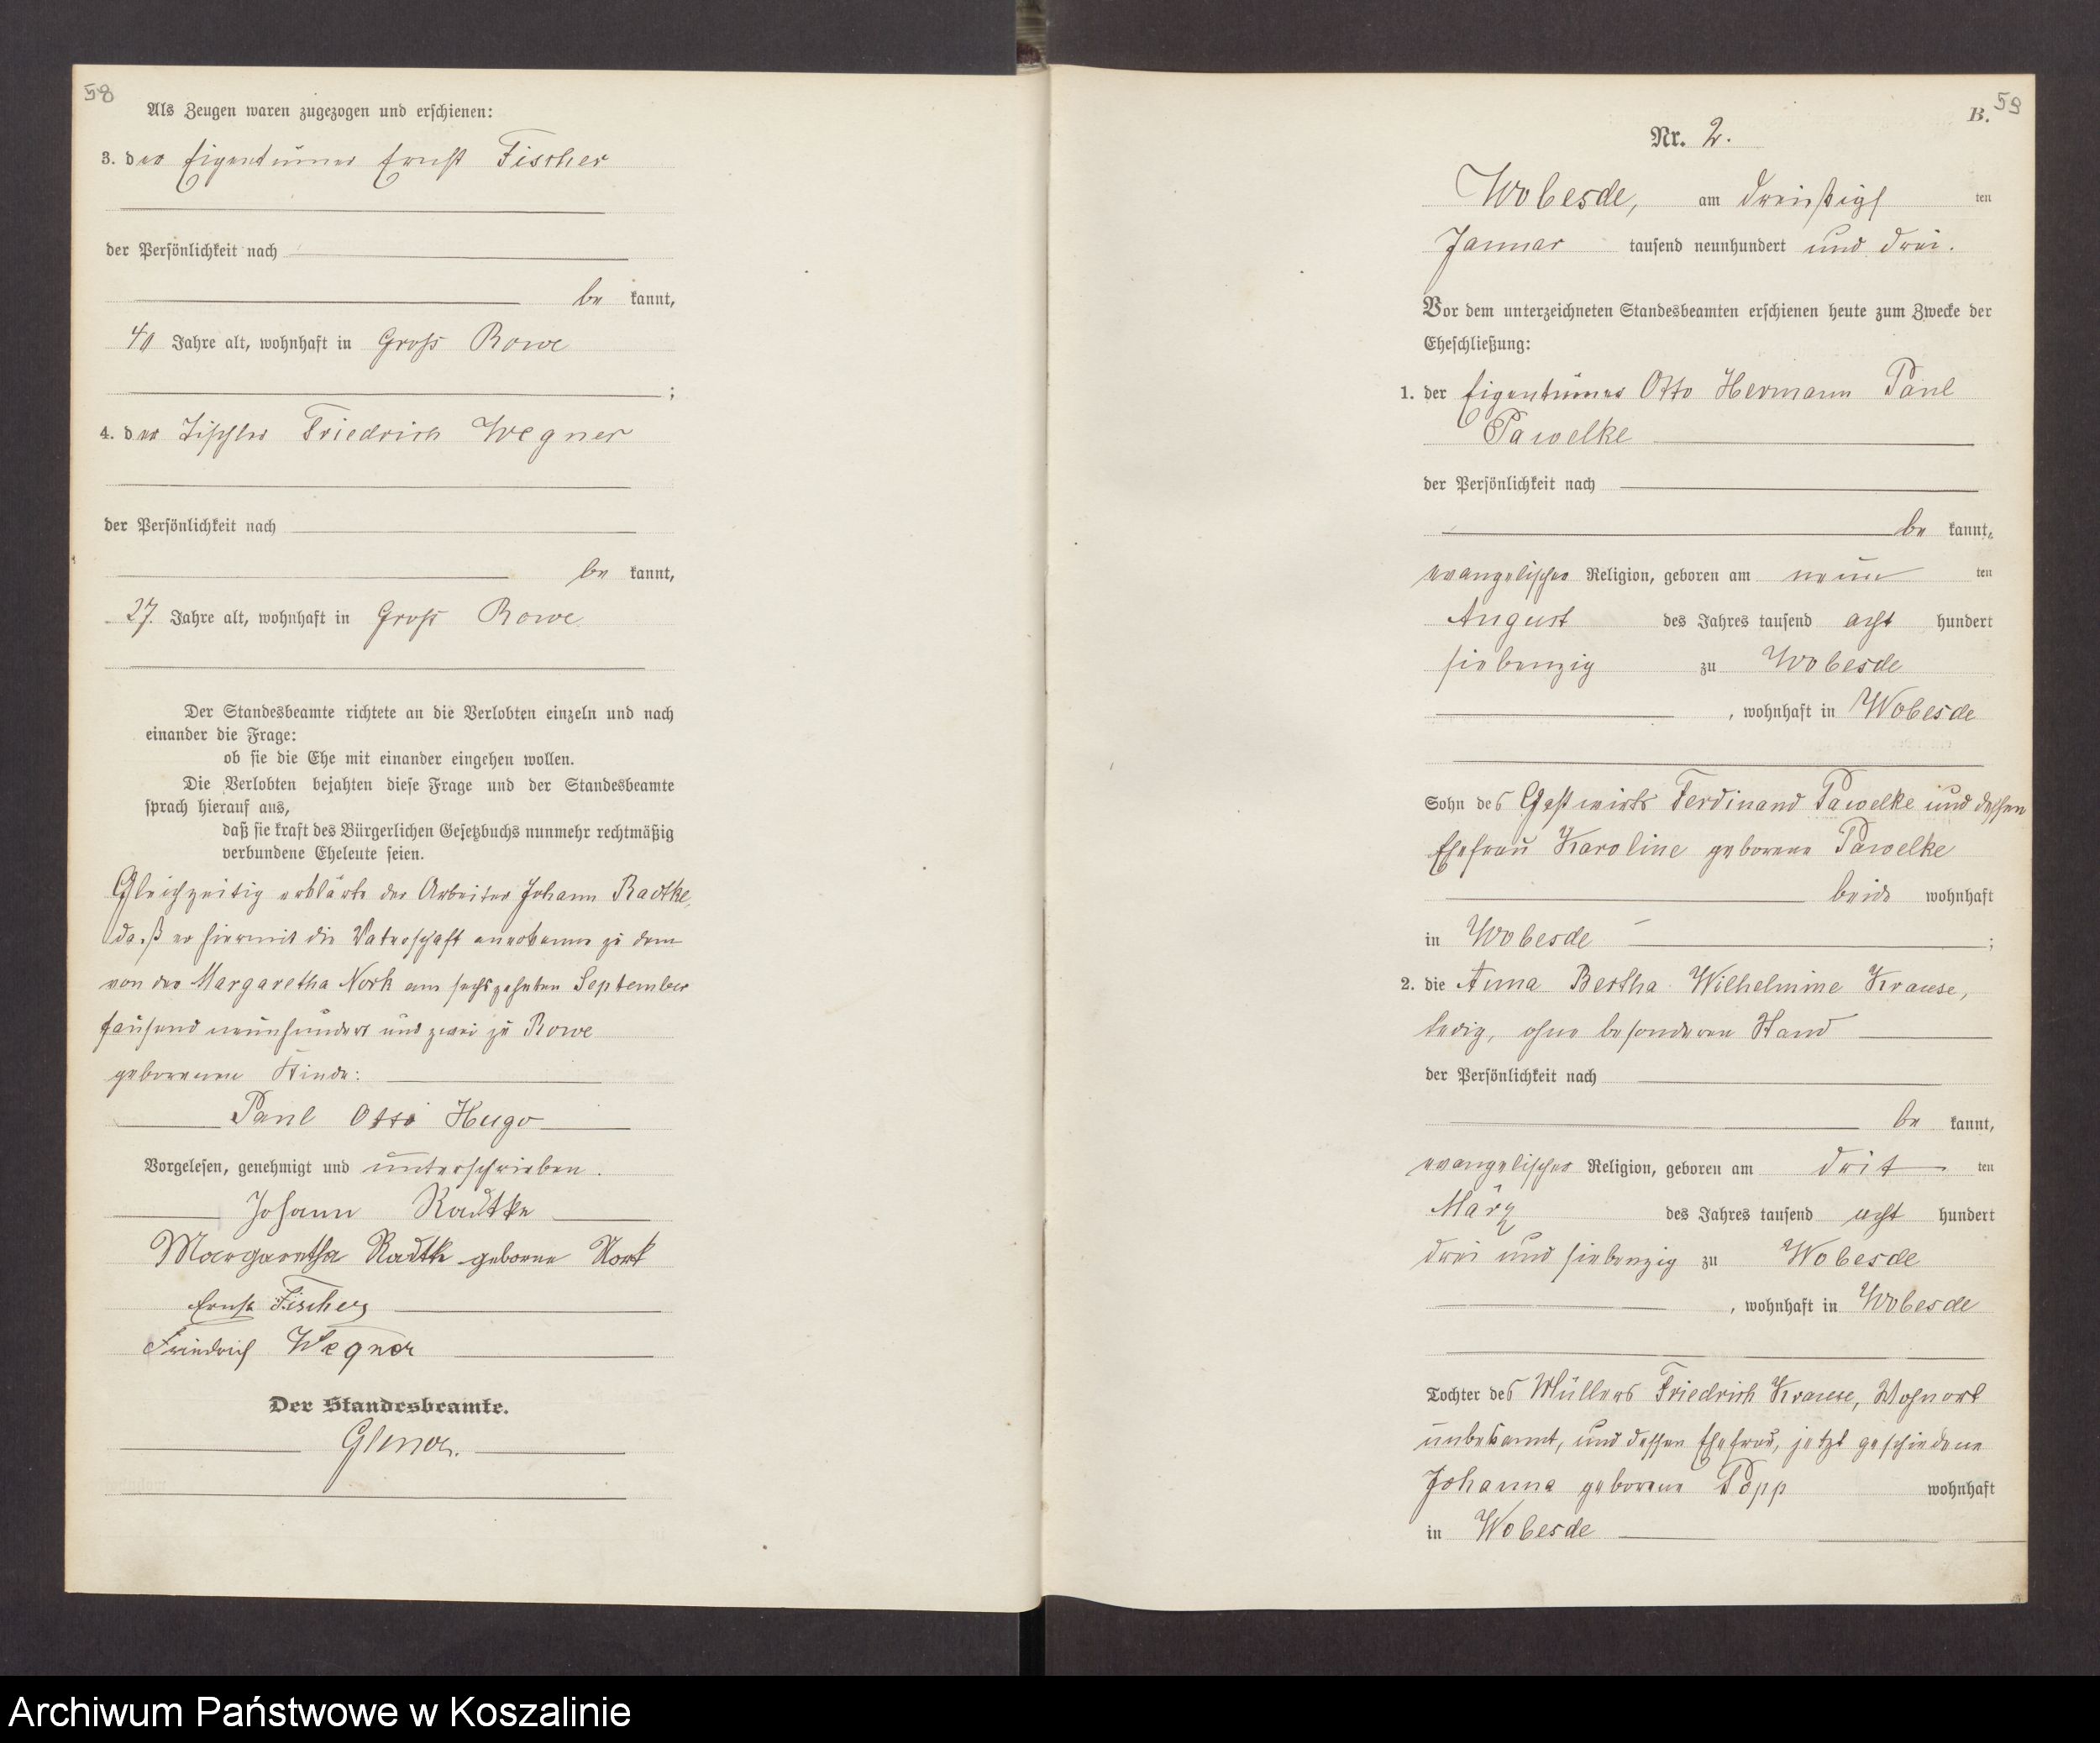 58
Als Zeugen waren zugezogen und erschienen:
3. der Eigentümer Ernst Fischer
der Persönlichkeit nach
be kannt,
40 Jahre alt, wohnhaft in Gross Rowe
;
4. der Tischler Friedrich Wegner
der Persönlichkeit nach
be kannt,
27 Jahre alt, wohnhaft in Gross Rowe
Der Standesbeamte richtete an die Verlobten einzeln und nach
einander die Frage:
ob sie die Ehe mit einander eingehen wollen.
Die Verlobten bejahten diese Frage und der Standesbeamte
sprach hierauf aus,
daß sie kraft des Bürgerlichen Gesetzbuchs nunmehr rechtmäßig
verbundene Eheleute seien.
Gleichzeitig erklärte der Arbeiter Johann Radtke,
daß er hiermit die Vaterschaft anerkenne zu dem
von der Margaretha Nork am sechszehnten September
tausend neunhundert und zwei zu Rowe
geborenen Kinde:
Paul Otto Hugo
Vorgelesen, genehmigt und unterschrieben.
Johann Radtke
Margaretha Radtke geborene Nork
Ernst Fischer
Friedrich Wegner
Der Standesbeamte.
59
B.
Nr. 2.
Wobesde, am dreißigs ten
Januar tausend neunhundert und drei.
Vor dem unterzeichneten Standesbeamten erschienen heute zum Zwecke der
Eheschließung:
1. der Eigentümer Otto Hermann Paul
Pawelke
der Persönlichkeit nach
be kannt,
evangelischer Religion, geboren am neun ten
August des Jahres tausend acht hundert
siebenzig zu Wobesde
, wohnhaft in Wobesde
Sohn des Gastwirts Ferdinand Pawelke und dessen
Ehefrau Karoline geborene Pawelke
beide wohnhaft
in Wobesde ;
2. die Anna Bertha Wilhelmine Krause,
ledig, ohne besonderen Stand
der Persönlichkeit nach
be kannt,
evangelischer Religion, geboren am drit ten
März des Jahres tausend acht hundert
drei und siebenzig zu Wobesde
, wohnhaft in Wobesde
Tochter des Müllers Friedrich Krause, Wohnort
unbekannt, und dessen Ehefrau, jetzt geschiedene
Johanna geborene Popp wohnhaft
in Wobesde
Archiwum Państwowe w Koszalinie